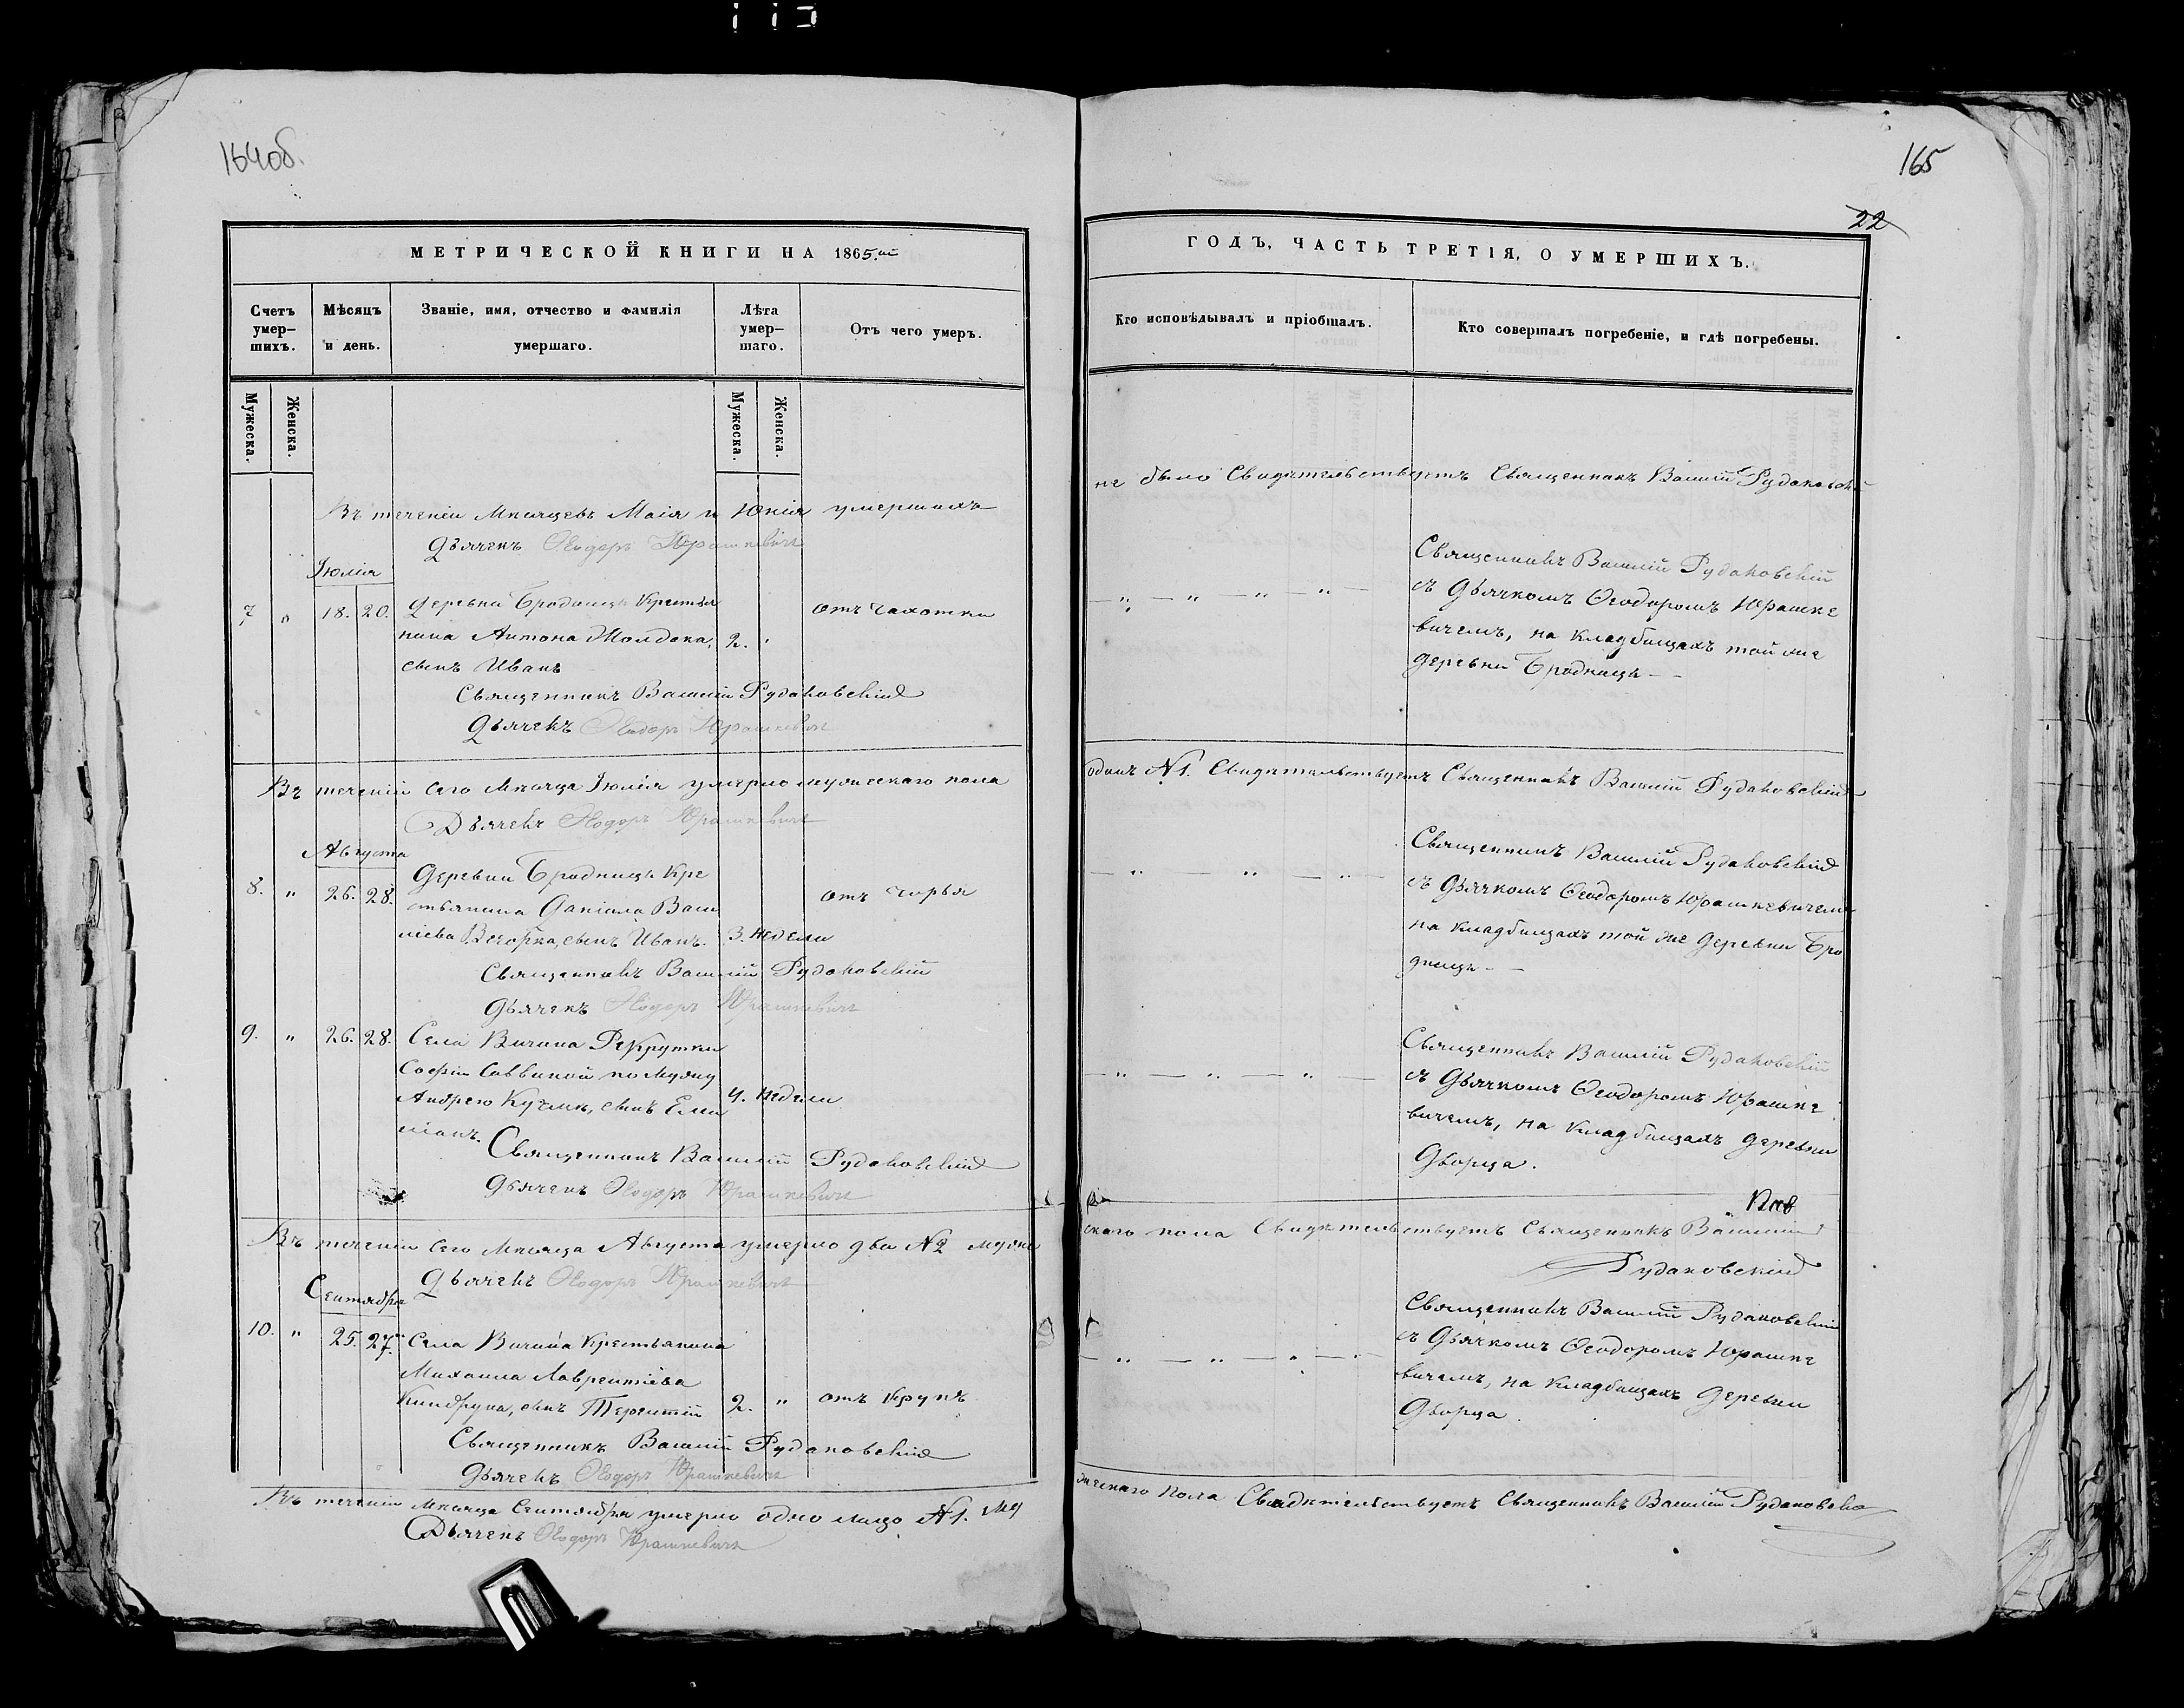 164об.
165
22
МЕТРИЧЕСКОЙ КНИГИ НА 1865.ый
ГОДЪ, ЧАСТЬ ТРЕТІЯ, О УМЕРШИХЪ.
Счетъ умер-
шихъ.
Мѣсяцъ
и день.
Званіе, имя, отчество и фамилія
умершаго.
Лѣта
умер-
шаго.
Отъ чего умеръ.
Кто исповѣдывалъ и пріобщалъ.
Кто совершалъ погребеніе, и гдѣ погребены.
Мужеска.
Женска.
Мужеска.
Женска.
Въ теченіи Мѣсяцевъ Маія и Юнія умершихъ
не было Свидѣтельствуетъ Священникъ Василій Рудаковскій
Дьячекъ Ѳеодоръ Юрашкевичъ
Іюлія
7 " 18. 20. деревни Бродницъ Крестья
нина Антона Молдока, 2. "
сынъ Иванъ
отъ чахотки
Священникъ Василій Рудаковскій
Дьячекъ Ѳеодоръ Юрашкевичъ
Священникъ Василій Рудаковскій
съ Дьячкомъ Ѳеодоромъ Юрашке
вичемъ, на кладбищахъ той же
деревни Бродницъ
Въ теченіи сего Мѣсяца Іюлія умерло мужескаго пола
одинъ №1. Свидѣтельствуетъ Священникъ Василій Рудаковскій
Дьячекъ Ѳеодоръ Юрашкевичъ
Августа
8. " 26. 28. Деревни Бродницъ Кре
стьянина Даніила Васи
ліева Вечорка, сынъ Иванъ. 3. недели
отъ чирья
Священникъ Василій Рудаковскій
Дьячекъ Ѳеодоръ Юрашкевичъ
Священникъ Василій Рудаковскій
съ Дьячкомъ Ѳеодоромъ Юрашкевичемъ
на кладбищахъ той же деревни Бро
дницъ
9. " 26. 28. Села Вичина Рекрутки
Софіи Саввиной по мужу
Андрею Кучмѣ, сынъ Еми 4. недели
ліанъ.
Священникъ Василій Рудаковскій
Дьячекъ Ѳеодоръ Юрашкевичъ
Священникъ Василій Рудаковскій
съ Дьячкомъ Ѳеодоромъ Юрашке
вичемъ, на кладбищахъ деревни
Дворца.
Въ теченіи сего Мѣсяца Августа умерло два №2 муже
скаго пола Свидѣтельствуетъ Священникъ Василій
Рудаковскій
Дьячекъ Ѳеодоръ Юрашкевичъ
Сентября
10. " 25. 27. Села Вичина Крестьянина
Михаила Лаврентіева
сынъ Терентій 2. " отъ крупъ
Священникъ Василій Рудаковскій
Дьячекъ Ѳеодоръ Юрашкевичъ
Священникъ Василій Рудаковскій
съ Дьячкомъ Ѳеодоромъ Юрашке
вичемъ, на кладбищахъ деревни
Дворца.
Въ теченіи Мѣсяца Сентября умерло одно лицо №1. му
жескаго пола Свидѣтельствуетъ Священникъ Василій Рудаковскій
Дьячекъ Ѳеодоръ Юрашкевичъ